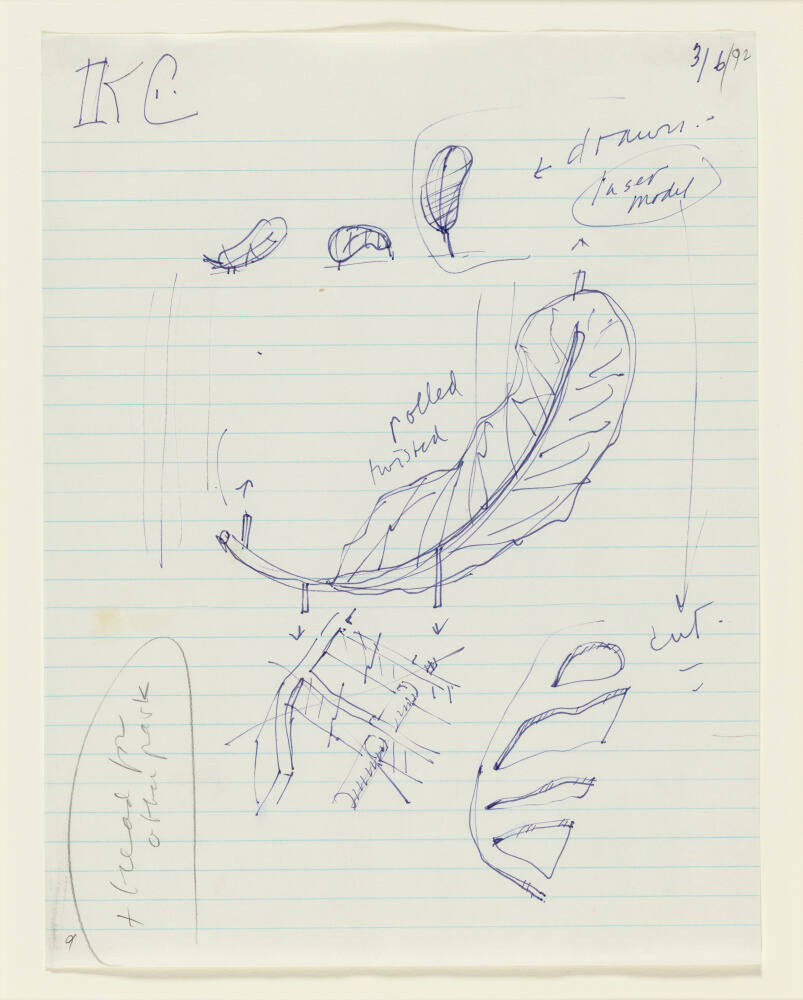 KC
3/6/92
drawn
laser
model
rolled
twisted
cut.
+ bread for
other park